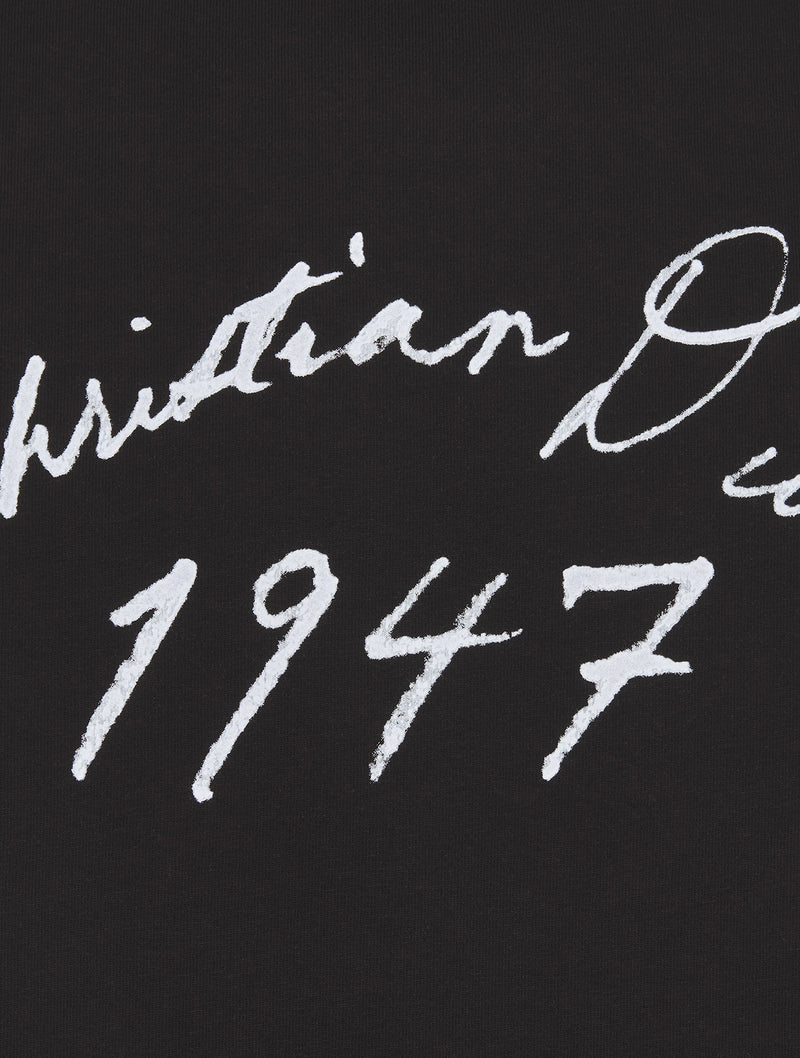 hristian Di
1947